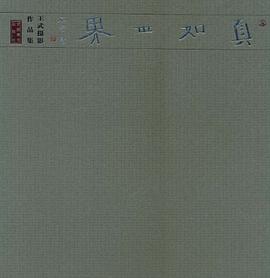 真如世界
王武摄影
作品集